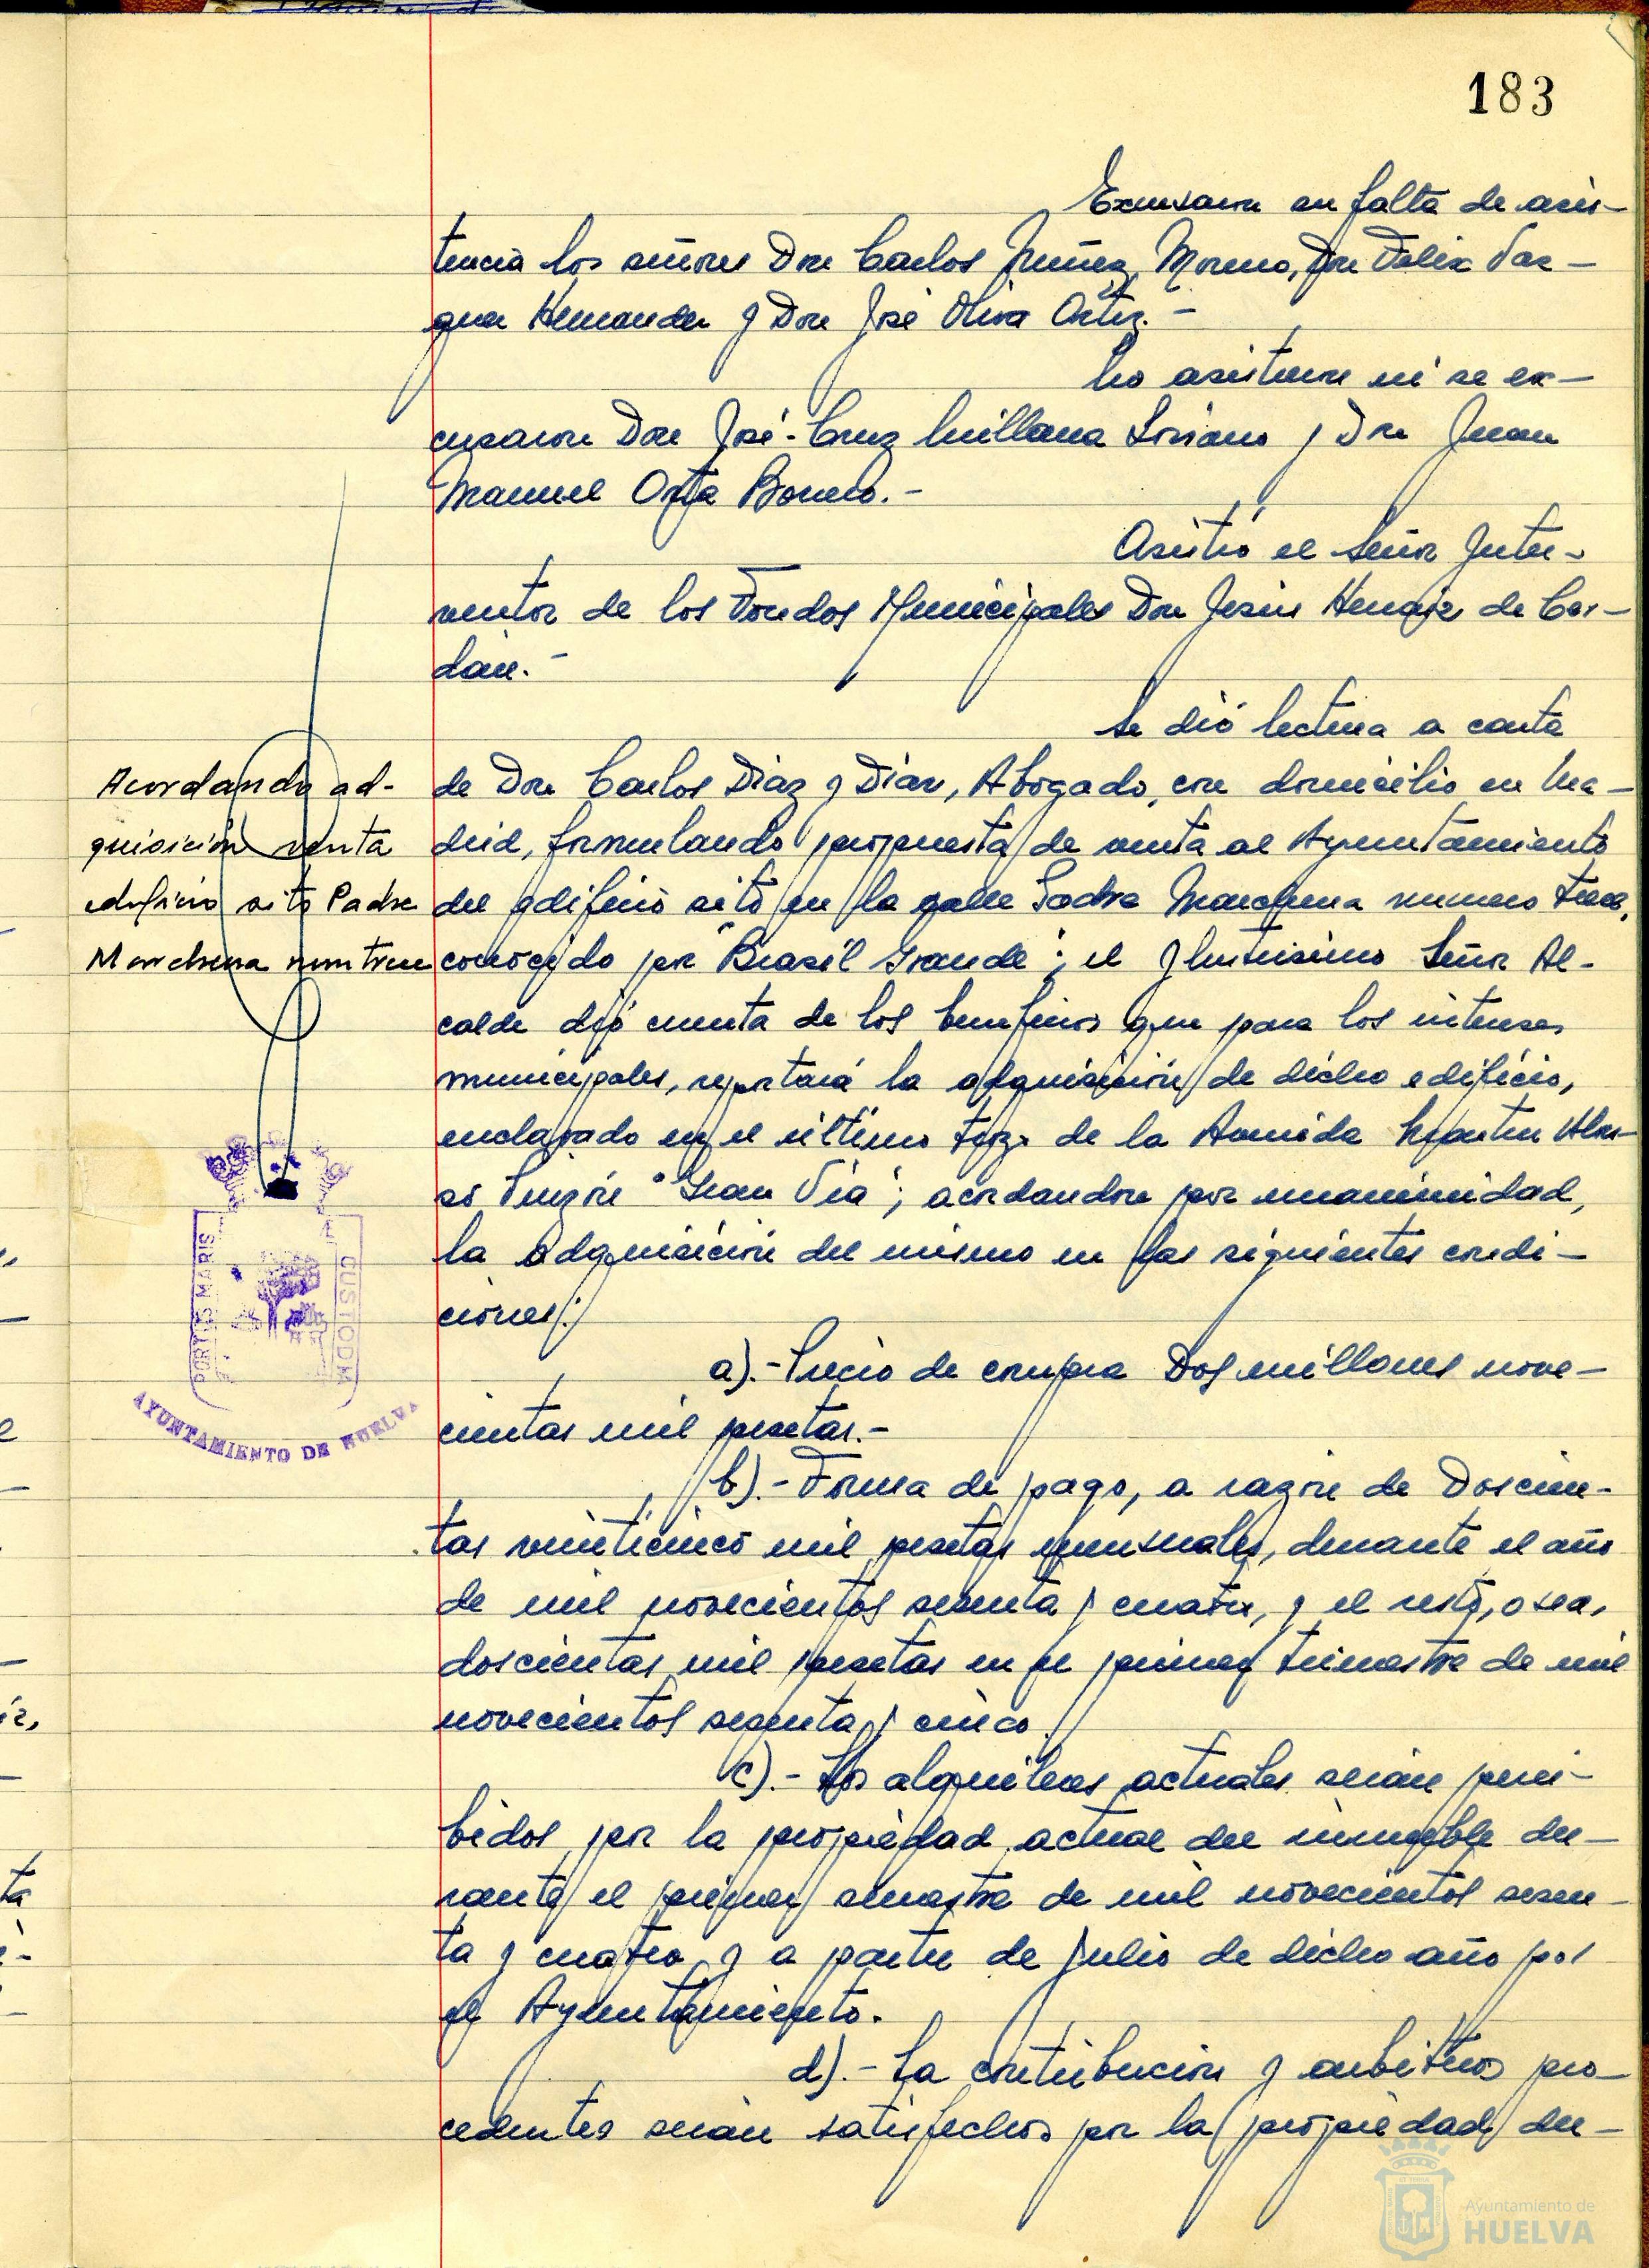 183
Excusaron su falta de asis-
tencia los señores Don Carlos Nuñez Moreno, Don Felix Vaz-
quez Hernandez y Don José Oliva Ortiz.-
No asistieron ni se ex-
cusaron Don José-Cruz Millana Soriano y Don Juan
Manuel Orta Borrero.-
Asistió el Señor Inter-
ventor de los Fondos Municipales Don Jesús de Cor-
dan.-
Se dió lectura a carta
de Don Carlos Diaz y Díaz, Abogado, con domicilio en Ma-
drid, formulando propuesta de venta al Ayuntamiento
del edificio sito en la calle Padre Marchena numero trece,
conocido por "Brasil Grande"; el Ilustrisimo Señor Al-
calde dió cuenta de los beneficios que para los intereses
municipales, reportará la adquisición de dicho edificio,
enclavado en el último trozo de la Avenida Martin Alon-
so Pinzón "Gran Vía"; acordandose por unanimidad,
la adquisición del mismo en las siguientes condi-
ciones:
a).- Precio de compra Dos millones nove-
cientas mil pesetas.-
b).- Forma de pago, a razón de Doscien-
tas veinticinco mil pesetas mensuales, durante el año
de mil novecientos sesenta y cuatro, y el resto, o sea,
doscientas mil pesetas en el primer trimestre de mil
novecientos sesenta y cinco.
c).- Los alquileres actuales serán perci-
bidos por la propiedad actual del inmueble du-
rante el primer semestre de mil novecientos sesen-
ta y cuatro y a partir de julio de dicho año por
el Ayuntamiento.
d).- La contribucion y arbitrios pro-
cedentes serán satisfechos por la propiedad du-
Acordando ad-
quisición venta
edificio sito Padre
Marchena num trece
PORTUS MARIS
CUSTODIA
AYUNTAMIENTO DE HUELVA
Ayuntamiento de
HUELVA